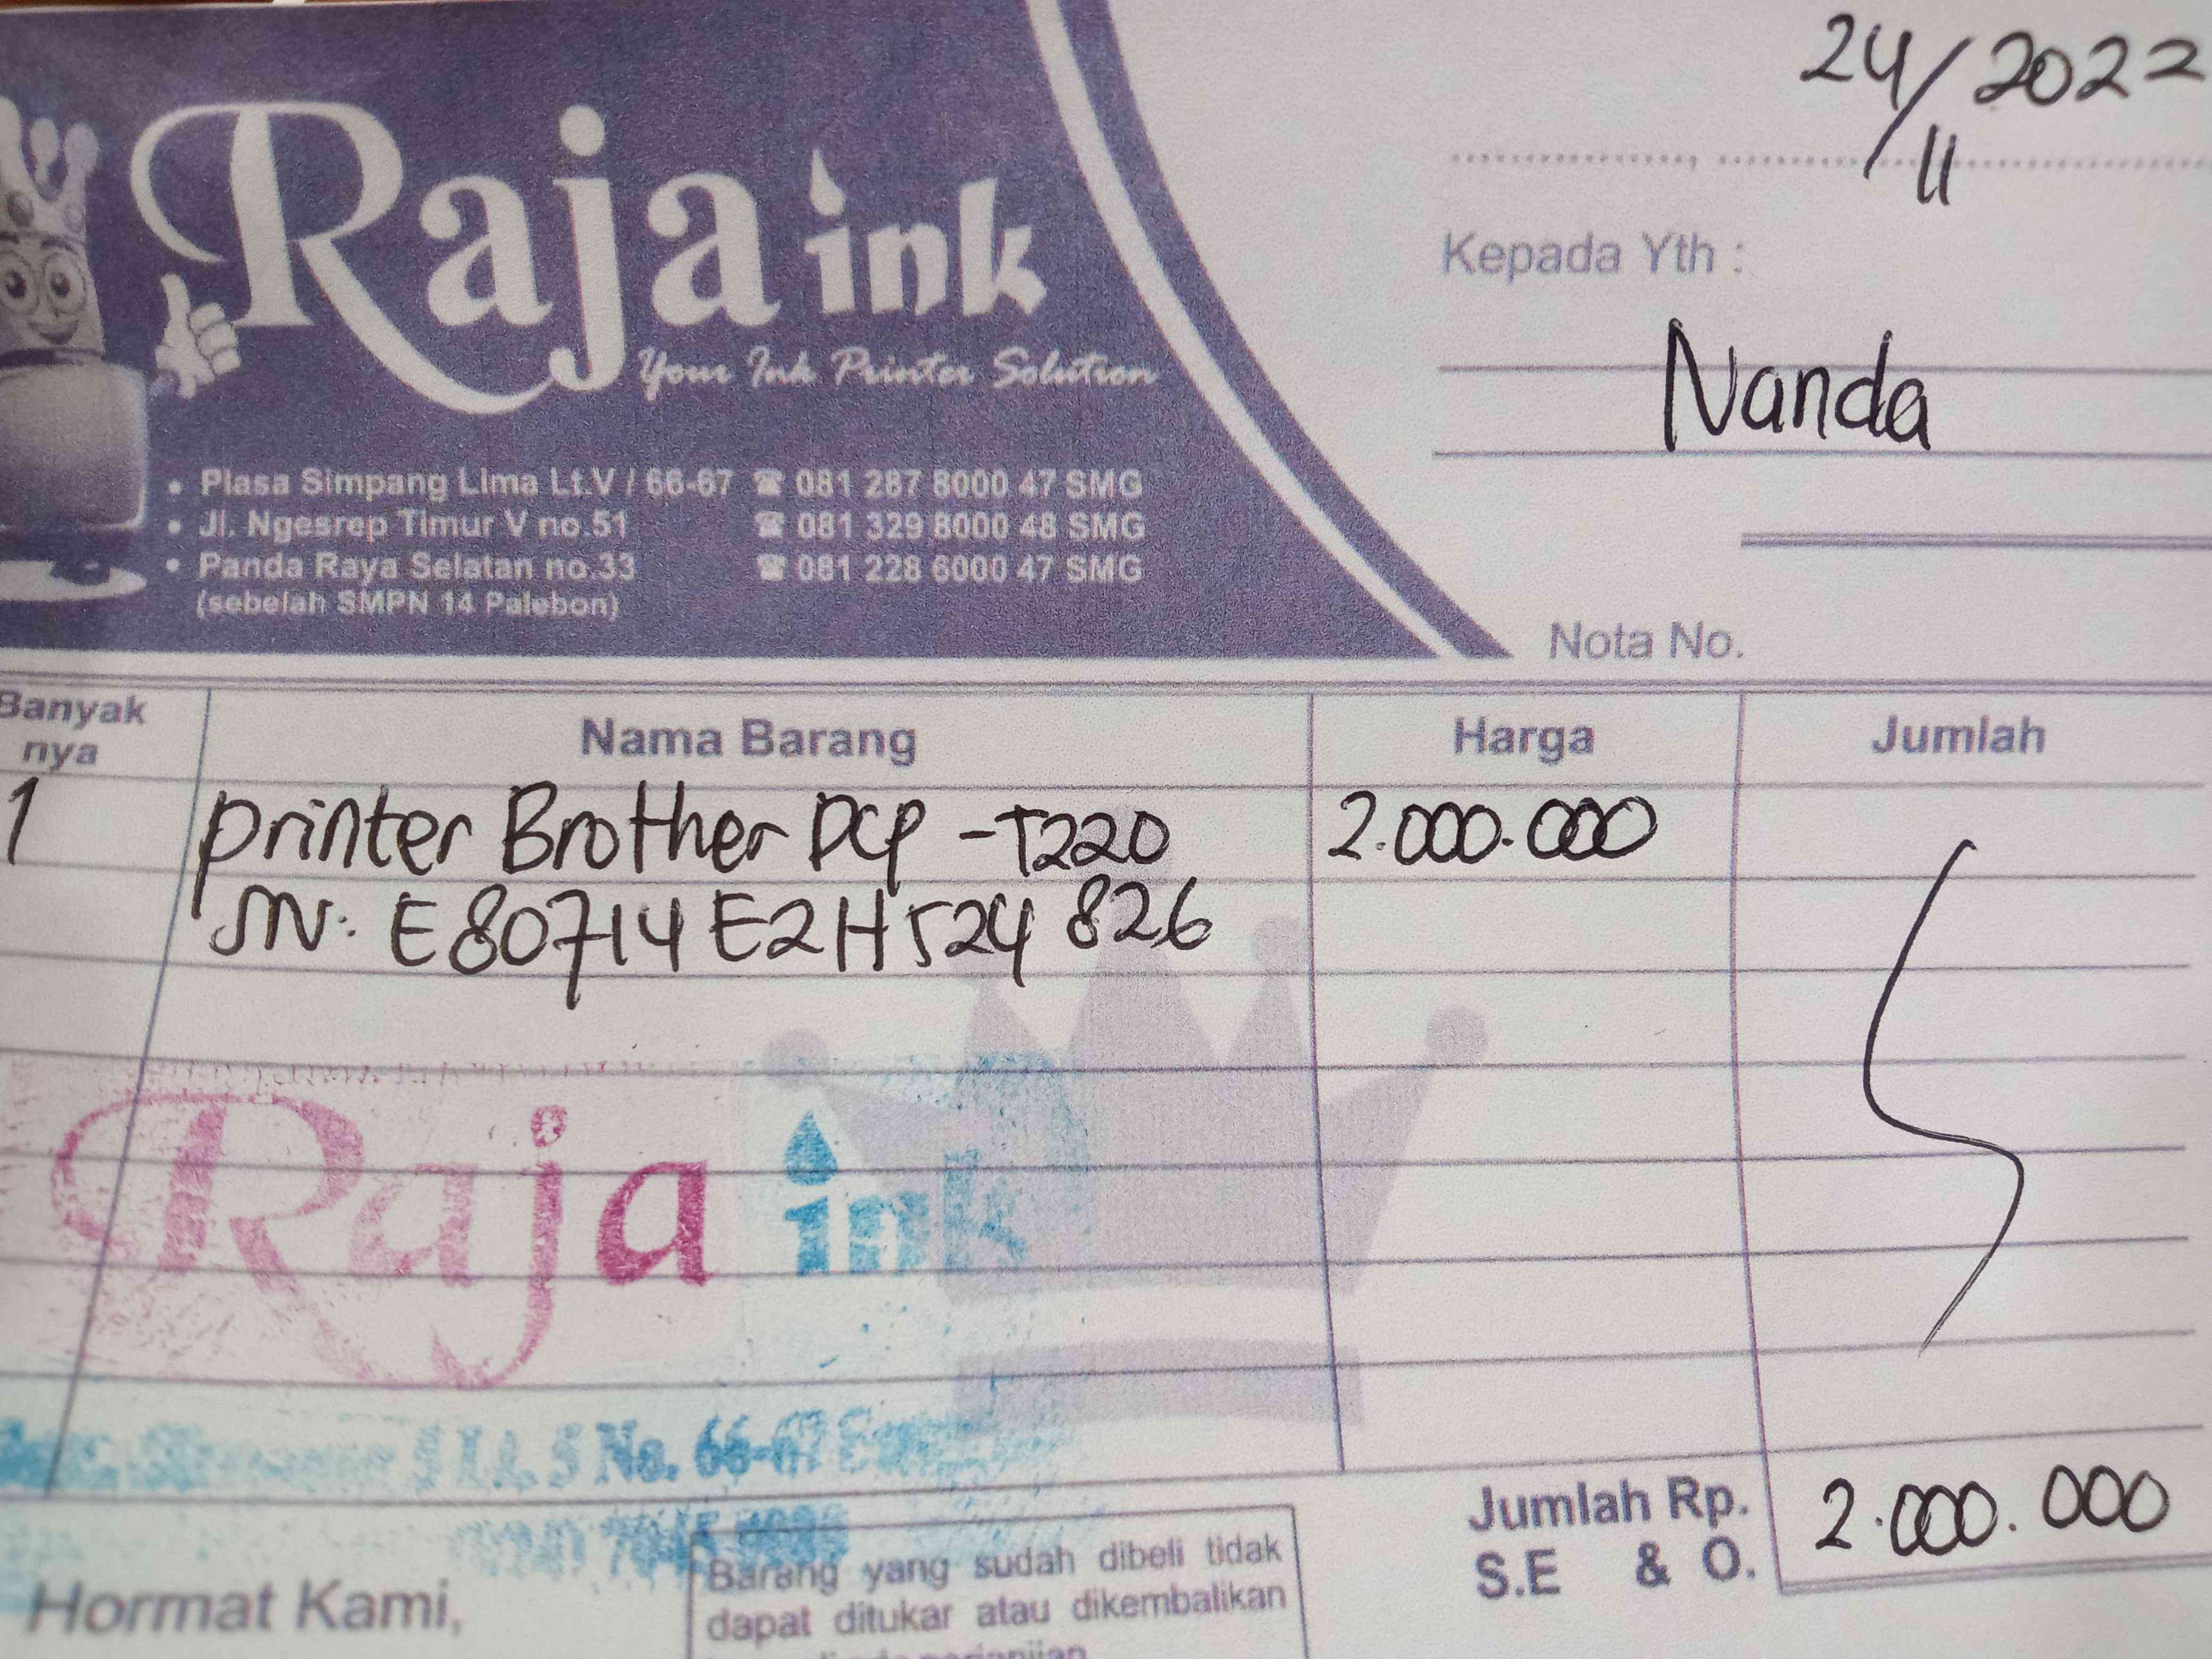 24/11 2022
Raja ink
Your Ink Printer Solution
Kepada Yth :
Nanda
• Plasa Simpang Lima Lt.V / 66-67 ☎ 081 287 8000 47 SMG
• Jl. Ngesrep Timur V no.51 ☎ 081 329 8000 48 SMG
• Panda Raya Selatan no.33 ☎ 081 228 6000 47 SMG
(sebelah SMPN 14 Palebon)
Nota No.
Banyak nya Nama Barang Harga Jumlah
1 printer Brother DCP -T220 2.000.000
SN: E80714E2H524826
Raja ink
Lt. 5 No. 66-67
Jumlah Rp. 2.000.000
S.E & O.
Hormat Kami,
Barang yang sudah dibeli tidak
dapat ditukar atau dikembalikan